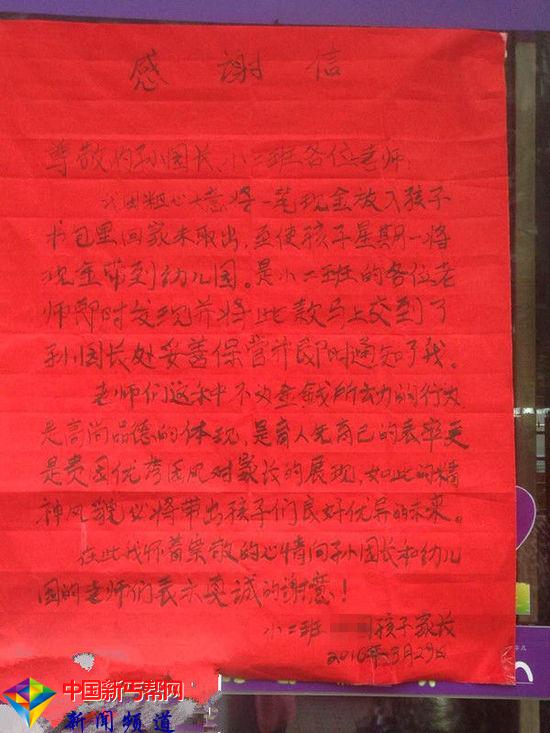 感谢信
尊敬的孙园长、小二班各位老师:
我因粗心大意将一笔现金放入孩子
书包里回家未取出,至使孩子星期一将
现金带到幼儿园。是小二班的各位老
师即时发现并将此款马上交到了
孙园长处妥善保管并即时通知了我。
老师们这种不为金钱所动的行为
是高尚品德的体现,是育人先育己的表率更
是贵园优秀园风对家长的展现,如此的精
神风貌必将带出孩子们良好优异的未来。
在此我怀着崇敬的心情向孙园长和幼儿
园的老师们表示真诚的谢意!
小二班 孩子家长
2016年3月29日
中国新丐帮网
新闻频道